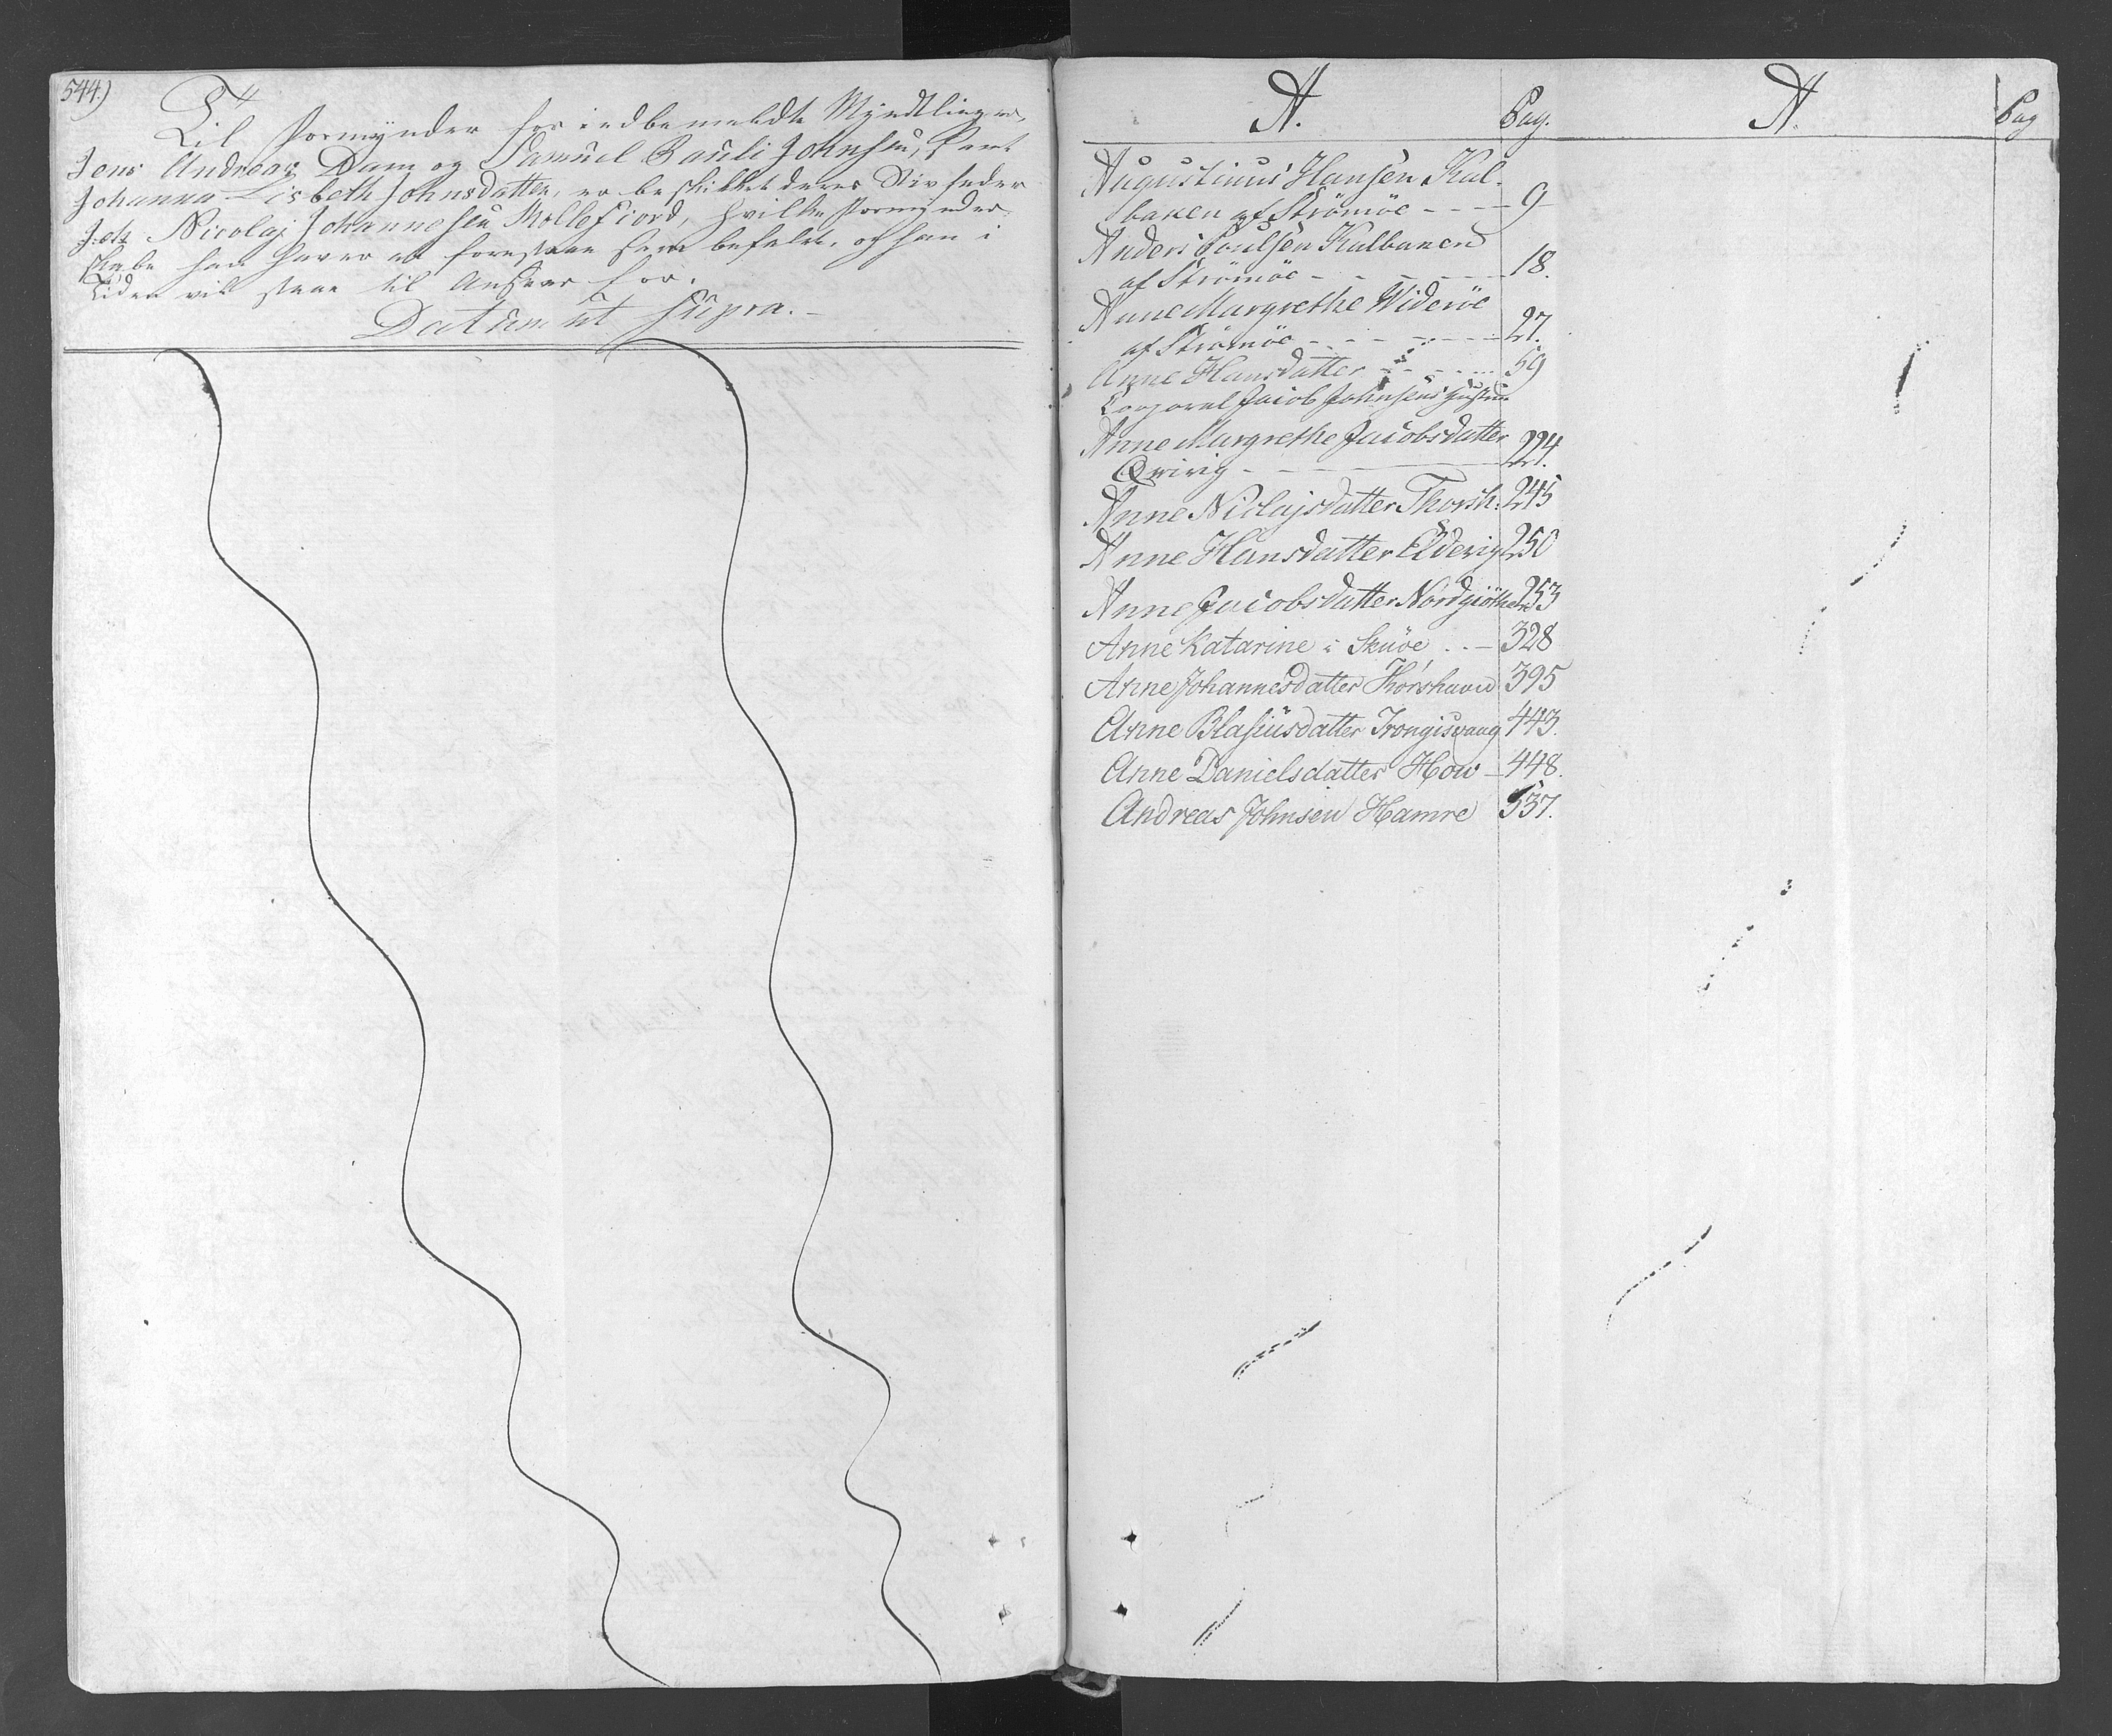 544)
Til Formynder for indbemeldte Myndtlinger,
Jens Andreas Dam og Samuel Pauli Johnsen, samt
Johanna Lisbeth Johnsdatter, er beskikket deres Stivfader
Nicolaj Johannesen Kollefiord, hvilke Formynder-
skabe han haver at forestaae som befalet, og han i
Tiden vil staae til Ansvar for.
Datum ut supra.
A. Pag. A. Pag
Augustinus Hansen Kal-
baken af Strömöe - - - - 9
Anders Poulsen Kalbaken
af Strömöe - - - - - - 18.
Anne Margrethe Wideröe
af Strömöe - - - - - - 27.
Anne Hansdatter - - - - 59
Corporal Jacob Johnsens Hustrue
Anne Margrethe Jacobsdatter
Qvivig - - - 224.
Anne Niclajsdatter Thorsh: 245
Anne Hansdatter Eldevig 250
Anne Jacobsdatter Nordgiöthe 253
Anne Katarine i Skuöe . . - 328
Anne Johannesdatter Thorshavn 395
Anne Blasiusdatter Trongisvaag 443.
Anne Danielsdatter How - 448.
Andreas Johnsen Hamre 537.